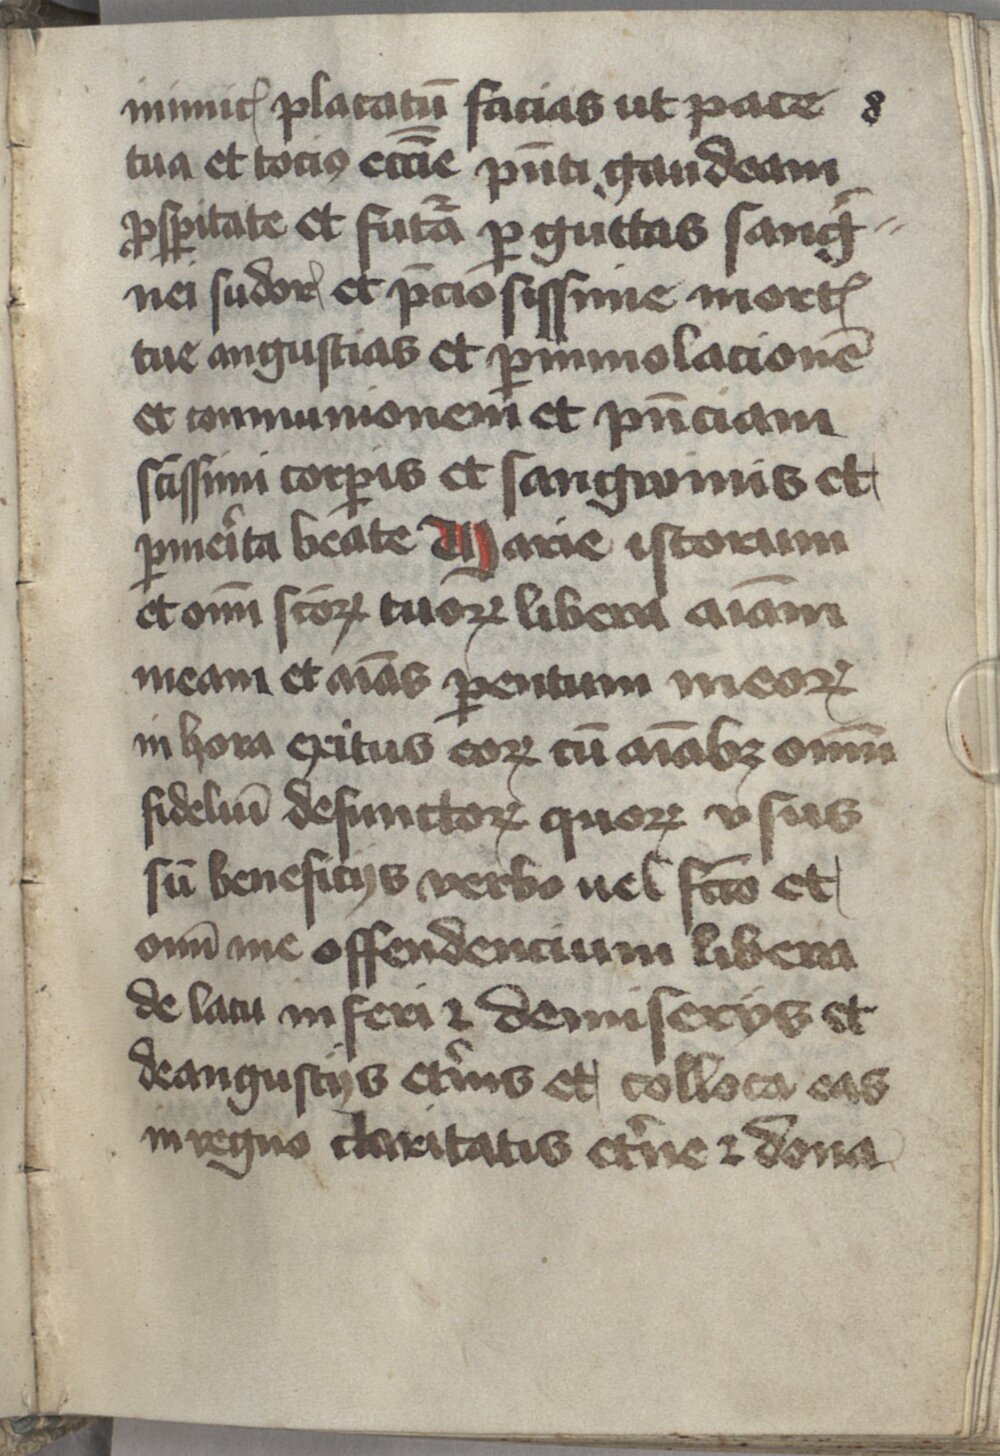 inimicꝭ placatū facias ut pace 8
tua et tociꝯ eccīe pn̄ti gaudeam
ꝓsꝑitate et futᷓa ꝑ guttas sangͥ
nei sudorꝭ et p̄ciosissime mortꝭ
tue angustias et ꝑ inmolacionē
et conmunionem et pn̄ciam
sc̄issimi corꝑis et sangwinis et
ꝑ meͥta beate Marie istorum
et om̄i sc̄orꝝ tuorꝝ libera aīam
meam et aīas ꝑentum meorꝝ
in hora exitus eorꝝ cū aīabꝫ om̄iū
fideliū defunctorꝝ quorꝝ vsus
sū beneficijs verbo uel fc̄o et
om̄i me offendencium libera
de lacu inferi ⁊ de miserijs et
de angustijs et̾nis et colloca eas
in regno claritatis et̾ne ⁊ dona